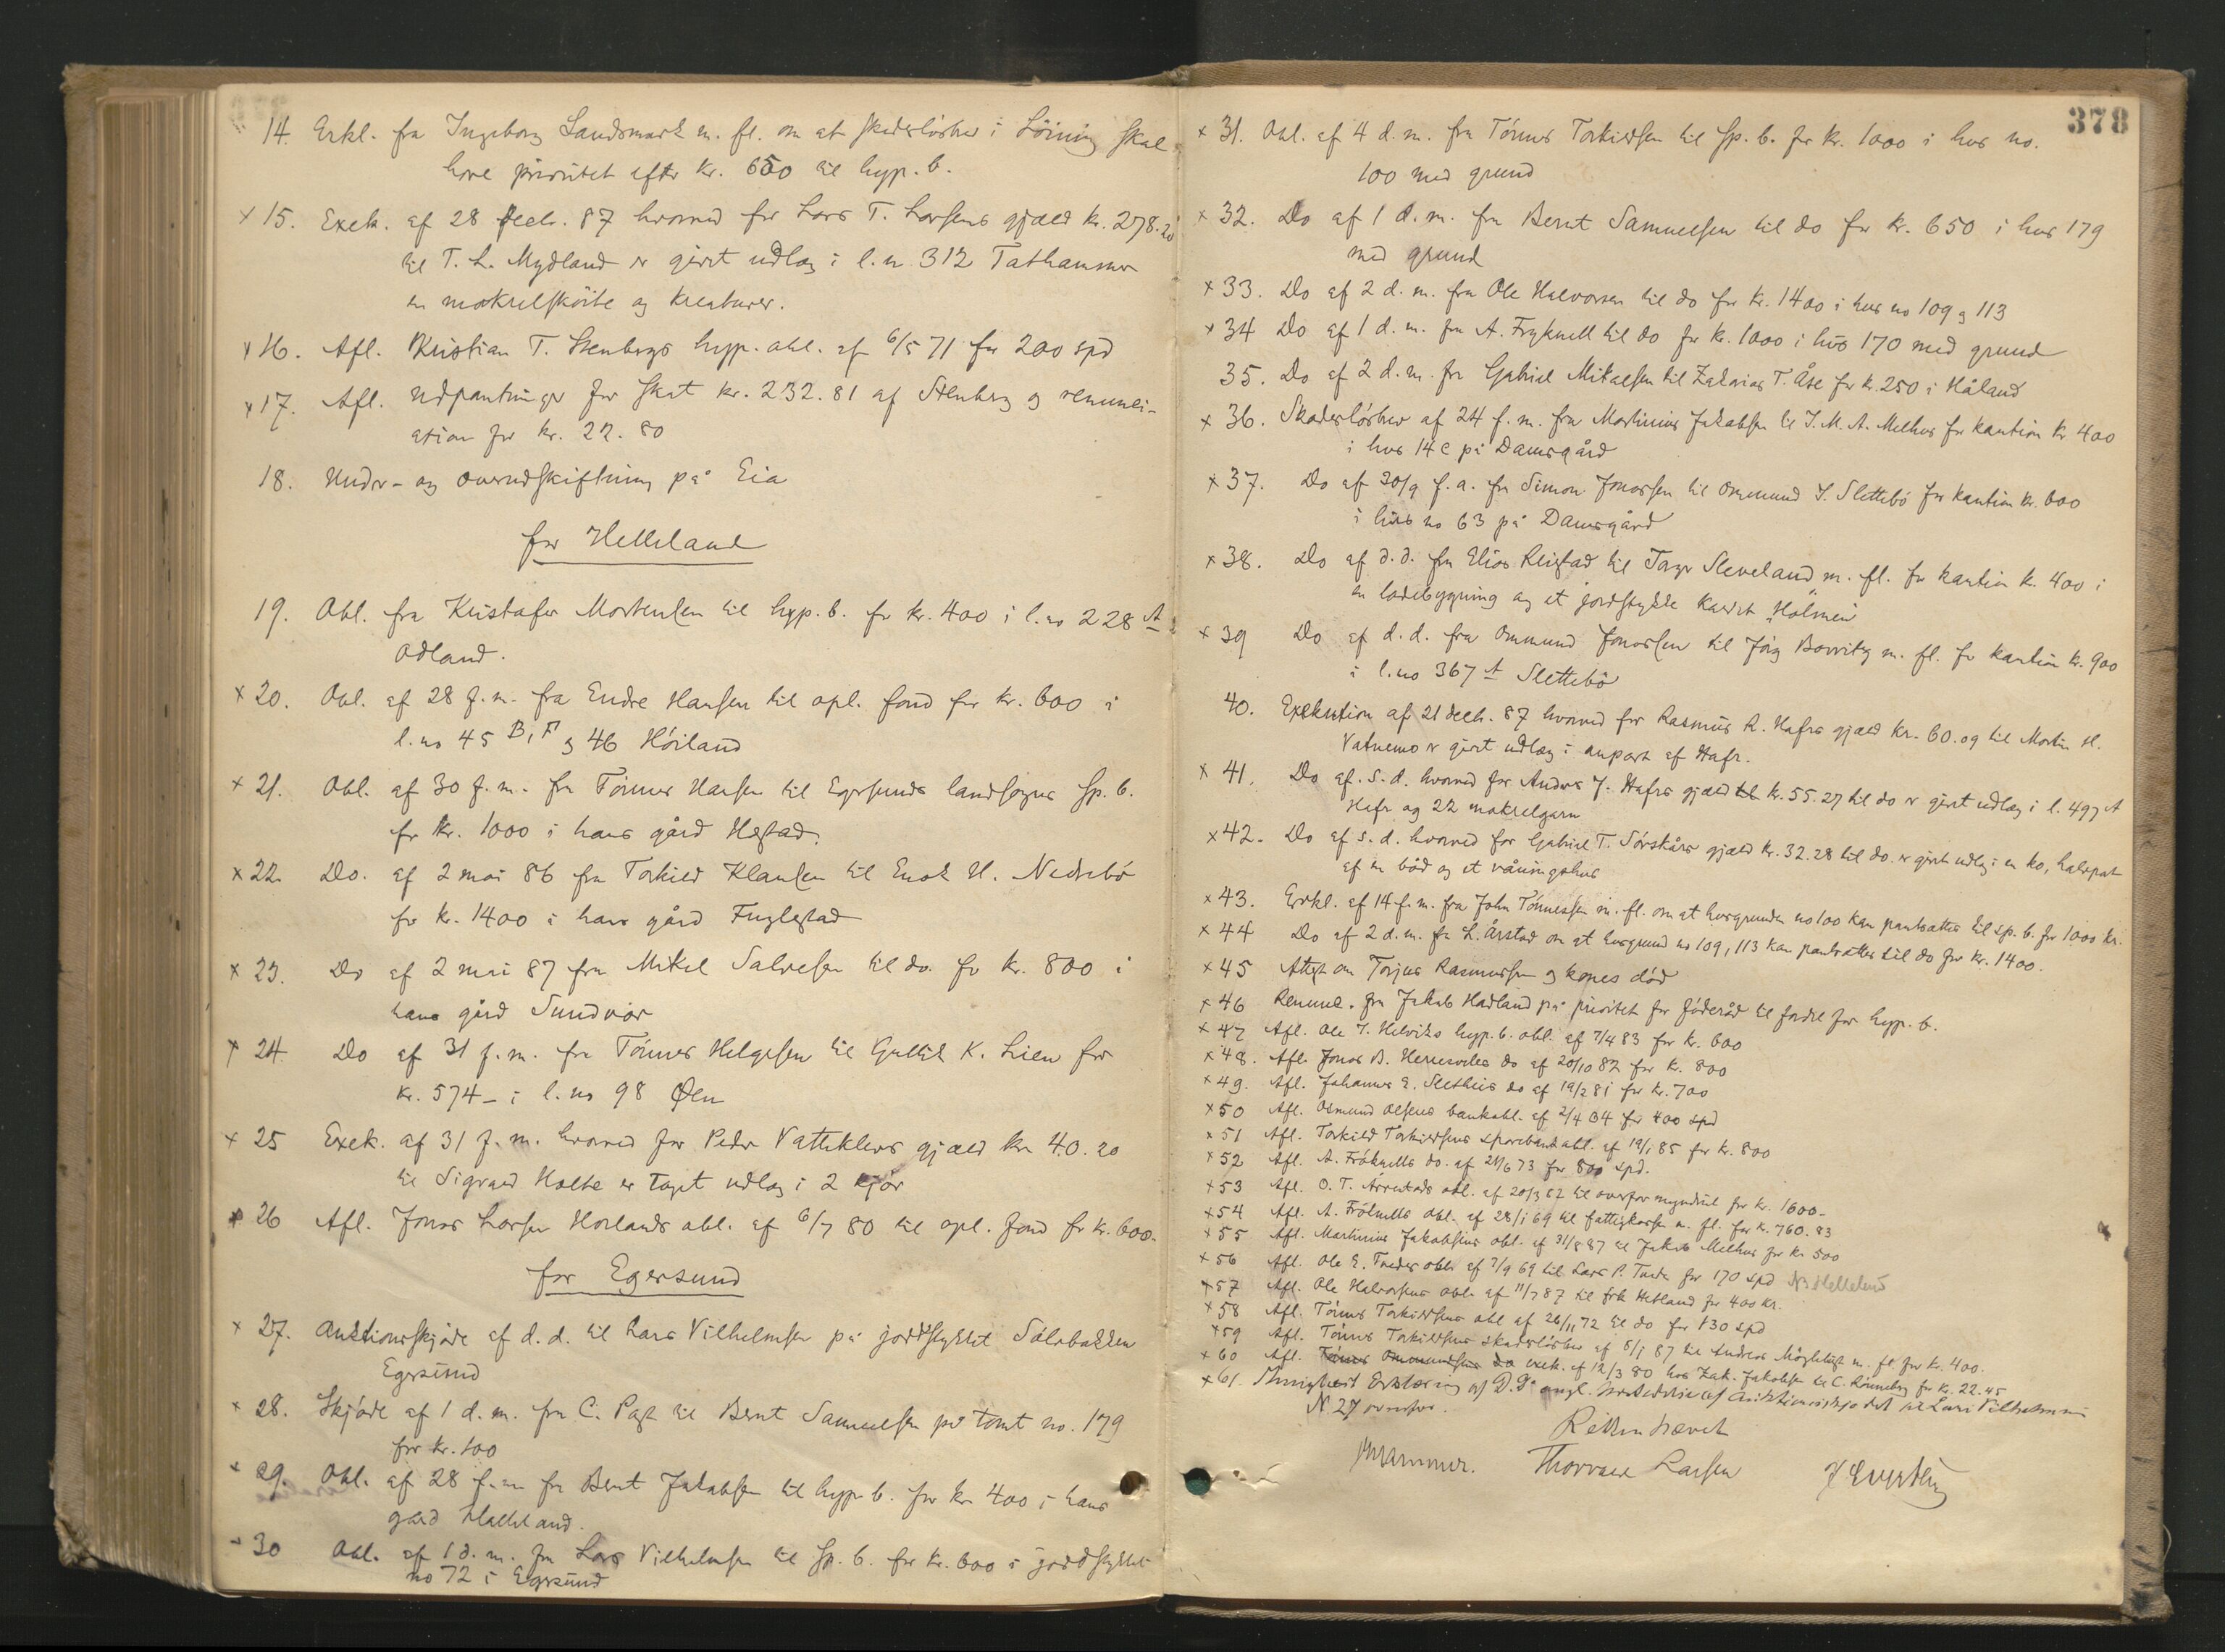 14. Erkl. fra Ingeborg Landsmark m. fl. om at skadesløsbr i Løining skal
have prioritet efter kr. 650 til hyp. b.
x 15. Exek. af 28 decb. 87 hvorved for Lars T. Larsens gjæld kr. 278.20
til T. L. Mydland er gjort udlæg i l. n 312 Tathammer
en makrelskøite og kreaturer.
x 16. Afl. Kristian T. Stenbergs hyp. obl. af 6/5 71 for 200 spd
x 17. Afl. udpantninger for skat kr. 232.81 af Stenberg og renunci-
ation for kr. 22.80
18. Under- og overudskiftning på Eia
for Helleland
19. Obl. fra Kristofer Mortensen til hyp. b. for kr. 400 i l. no 228 A
Odland.
x 20. Obl. af 28 f. m. fra Endre Hansen til opl. fond for kr. 600 i
l. no 45 B, F og 46 Høiland
x 21. Obl. af 30 f. m. fra Tønnes Hansen til Egersunds landsogns Sp. b.
for kr. 1000 i hans gård Hegstad.
x 22. Do. af 2 mai 86 fra Torkild Klausen til Enok H. Nedrebø
for kr. 1400 i hans gård Fuglestad
x 23. Do af 2 mai 87 fra Mikel Salvesen til do. for kr. 800 i
hans gård Sundvor
x 24. Do af 31 f. m. fra Tønnes Helgesen til K. Lien for
kr. 574 – i l. no 98 Øen
x 25 Exek. af 31 f. m. hvorved for Peder Vatteklevs gjæld kr 40.20
til Sigvard Holte er taget udlæg i 2 kjør
x 26 Afl. Jonas Larsen Horlands obl. af 6/7 80 til opl. fond for kr. 600.
for Egersund
x 27. Auktionsskjøde af d. d. til Lars Vilhelmsen på jordstykket Sólebakken
Egersund
x 28. Skjøde af 1 d. m. fra C. Pagt til Bernt Samuelsen på tomt no. 179
for kr. 100
x 29. Obl. af 28 f. m. fra Bernt Jakobsen til hyp. b. for kr. 400 i hans
gård Helleland.
x 30 Obl. af 1 d. m. fra Lars Vilhelmsen til Sp. b. for kr. 600 i jordstykket
no 72 i Egersund
378
x 31. Obl. af 4 d. m. fra Tønnes Torkildsen til Sp. b. for kr. 1000 i hus no.
100 med grund
x 32. Do af 1 d. m. fra Bernt Samuelsen til do for kr. 650 i hus 179
med grund
x 33. Do af 2 d. m. fra Ole Halvorsen til do for kr. 1400 i hus no 109 og 113
x 34 Do af 1 d. m. fra A. Fryknell til do for kr. 1000 i hus 170 med grund
35. Do af 2 d. m. fra Gabriel Mikalsen til Zakarias T. Åse for kr. 250 i Håland
x 36. Skadesløsbrev af 24 f. m. fra Martinius Jakobsen til J. M. A. Melhus for kaution kr 400
i hus 14 c på Damsgård
x 37. Do af 30/9 f. a. fra Simon Jonassen til Ommund J. Slettebø for kaution kr. 600
i hus no 63 på Damsgård
x 38. Do af d. d. fra Elias Reigstad til Sleveland m. fl. for kaution kr. 400 i
en ladebygning og et jordstykke kaldet "Holmen"
x 39 Do af d. d. fra Ommund Jonassen til m. fl. for kaution kr. 900
i l. no 367 A Slettebø
40. Exekution af 21 decb. 87 hvorved for Rasmus R. Hafrs gjæld kr. 60.09 til Martin H.
Vatnemo er gjort udlæg i anpart af Hafr.
x 41. Do af s. d. hvorved for Anders J. Hafrs gjæld til kr. 55.27 til do er gjort udlæg i l. 497 A
Hafr og 22 makrelgarn
x 42. Do af s. d. hvorved for Gabriel T. Sørskårs gjæld kr. 32.28 til do. er gjort udlæg i en ko, halvpart
af en båd og et våningshus
x 43. Erkl. af 14 f. m. fra John Tønnessen m. fl. om at husgrunden no 100 kan pantsættes til sp. b. for 1000 kr.
x 44 Do af 2 d. m. fra L. Årstad om at husgrund no 109, 113 kan pantsættes til do for kr. 1400.
x 45 Attest om Torjus Rasmussen og kones død
x 46 Renunc. fra Jakob Hadland på prioritet for føderåd til fordel for hyp. b.
x 47 Afl. Ole J. Helviks hyp. b. obl. af 7/4 83 for kr. 600
x 48. Afl. Jonas B. do af 20/10 82 for kr. 800
x 49. Afl. Johannes E. do af 19/2 81 for kr. 700
x 50 Afl. Osmund Olsens bankobl. af 2/4 for 400 spd
x 51 Afl. Torkild Torkildsens sparebankobl. af 19/1 85 for kr. 800
x 52 Afl. A. Fröknells do. af 21/6 73 for 800 spd.
x 53 Afl. O. T. obl. af 20/3 82 til overformynderiet for kr. 1600 –
x 54 Afl. A. Fröknells obl. af 28/1 69 til fattigkassen m. fl. for kr. 760.83
x 55 Afl. Martinius Jakobsens obl. af 31/8 87 til Jakob Melhus for kr 500
x 56 Afl. Ole E. Tredes obl. af 7/9 69 til Lars P. for 170 spd NB Helleland
x 57 Afl. Ole Halvorsens obl. af 11/7 87 til frk Hetland for 400 kr.
x 58 Afl. Tønnes Torkildsens obl af 26/11 72 til do for 130 spd
x 59 Afl. Tønnes Torkildsens skadesløsbrev af 8/1 87 til Anders m. fl for kr. 400.
x 60 Afl. Tønnes Ommundsens do exek. af 12/3 80 hos Zak. Jakobsen til C. Rönneberg for kr. 22.45
x 61. Erklæring af D. D. angl. af Auktionsskjødet til Lars Vilhelmsen
N 27 ovenfor.
Thorvald Larsen
J Evertsen